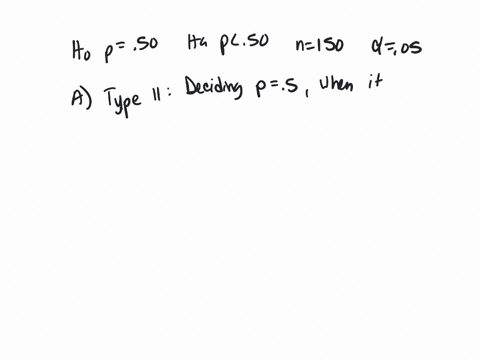 Ho p=.50 Ha p<.50 n=150 α=.05
A) Type II: Deciding p=.5, when it